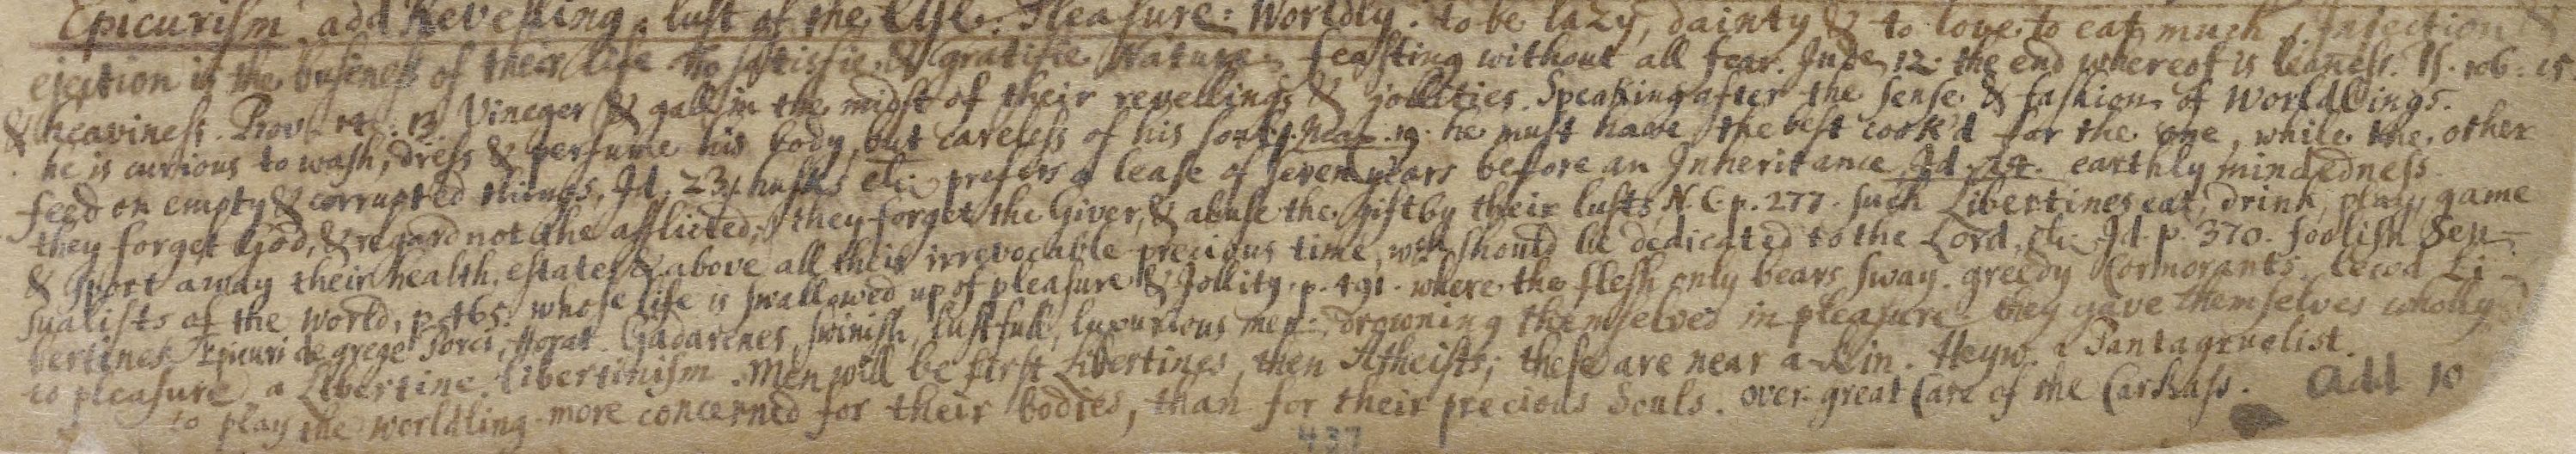 Epicurism. add Revelling. lust of the Eye. Pleasure. Worldly. to be lazy, dainty & to love to eat much, Injection &
ejection is the business of their life to satisfie & gratifie Nature. feasting without all fear. Jude 12. the end whereof is leaness. Ps. 106. 15
& heaviness. Prov. 14. 13. Vineger & gall in the midst of their revellings & jollities. Speaking after the sense & fashion of Worldlings.
he is curious to wash, dress & perfume his body, but careless of his soul. p. 19. he must have the best cook'd for the one, while the other
feed on empty & corrupted things. Id. 23. husks etc. prefers a lease of seven years before an Inheritance Id. 24. earthly mindedness.
they forget God, & regard not the afflicted; they forget the Giver, & abuse the gift by their lusts, N. C. p. 277. such Libertines eat, drink, play, game
& sport away their health, estates & above all their irrevocable precious time, wch should be dedicated to the Lord, etc. Id. p. 370. foolish Sen-
sualists of the World, p. 465. whose life is swallowed up of pleasure & Jollity. p. 491. where the flesh only bears sway. greedy Cormorants. lewd Li-
bertines. Epicuri de grege Porci, Horat. Gadarenes, swinish, lustfull, luxurious men. drowning themselves in pleasure. they gave themselves wholly
to pleasure. a Libertine. libertinism. Men will be first Libertines, then Atheists; these are near a-kin. Heyw. a Pantagruelist.
to play the worldling. more concerned for their bodies, than for their precious Souls. over-great Care of the Carkass. add 10
437